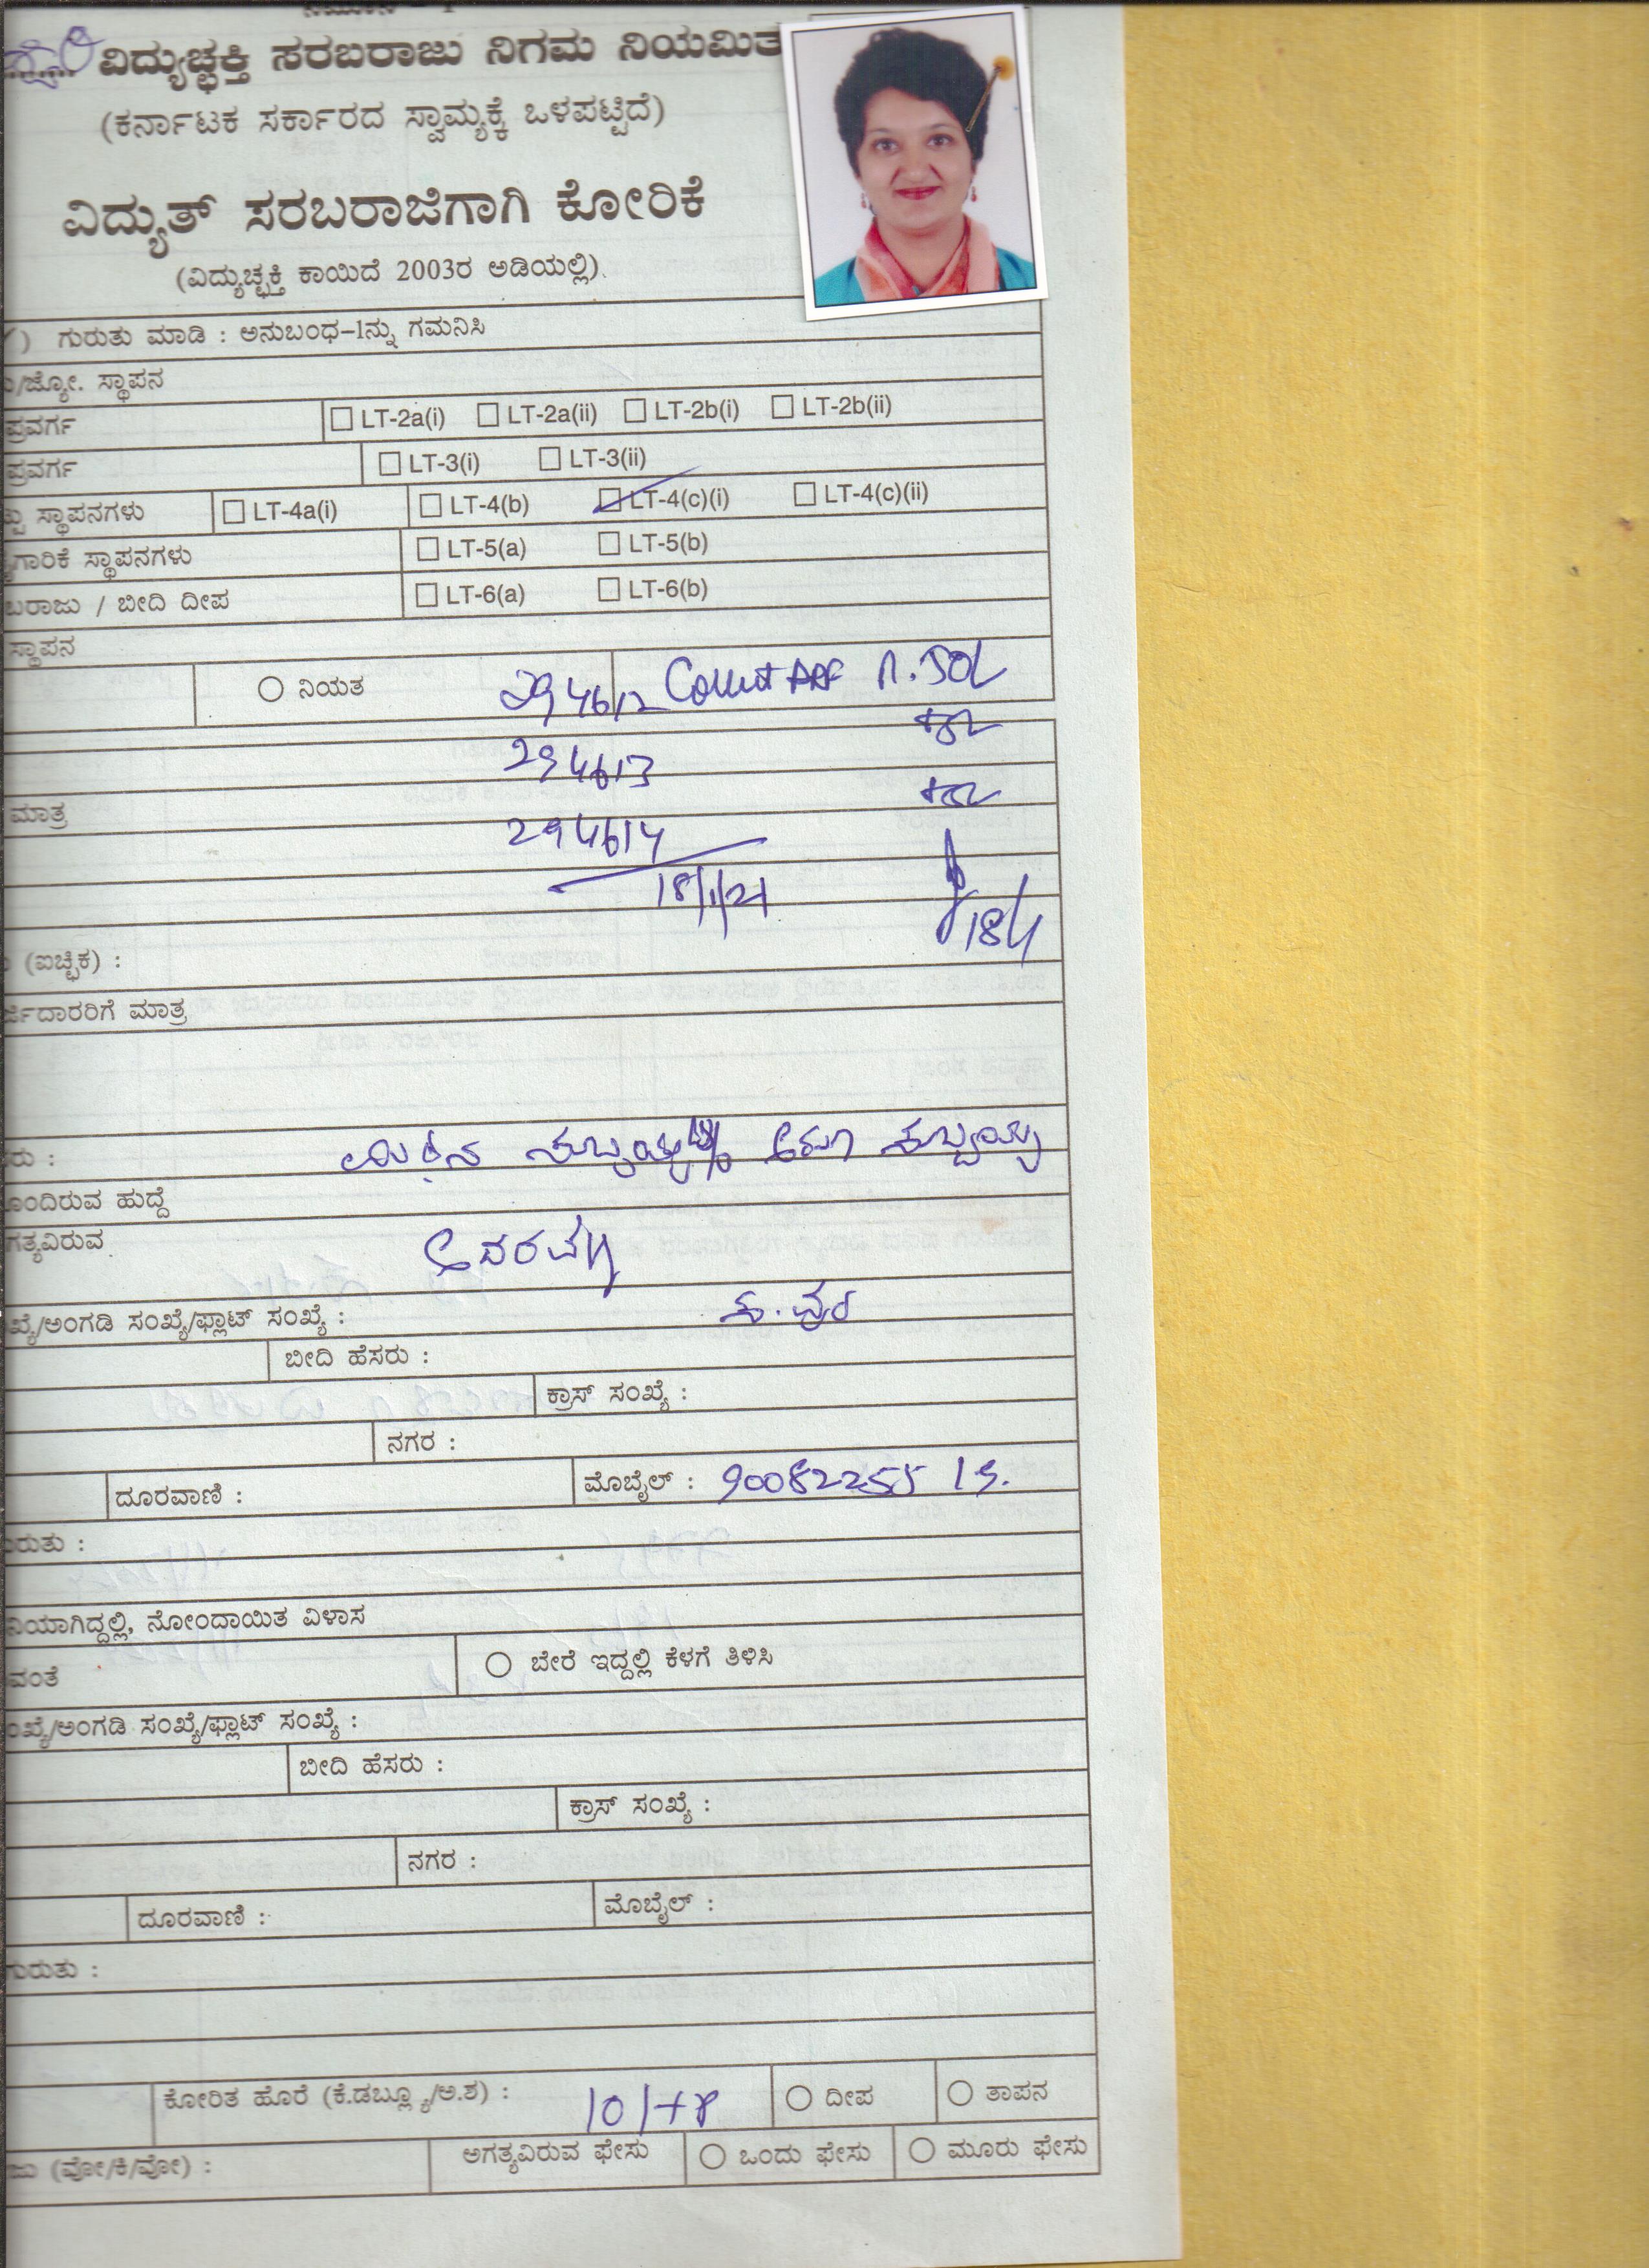 ವಿದ್ಯುಚ್ಛಕ್ತಿ ಸರಬರಾಜು ನಿಗಮ ನಿಯಮಿತ
(ಕರ್ನಾಟಕ ಸರ್ಕಾರದ ಸ್ವಾಮ್ಯಕ್ಕೆ ಒಳಪಟ್ಟಿದೆ)
ವಿದ್ಯುತ್ ಸರಬರಾಜಿಗಾಗಿ ಕೋರಿಕೆ
(ವಿದ್ಯುಚ್ಛಕ್ತಿ ಕಾಯಿದೆ 2003ರ ಅಡಿಯಲ್ಲಿ)
) ಗುರುತು ಮಾಡಿ : ಅನುಬಂಧ-1ನ್ನು ಗಮನಿಸಿ
/ಜ್ಯೋ. ಸ್ಥಾಪನ
ಪ್ರವರ್ಗ LT-2a(i) LT-2a(ii) LT-2b(i) LT-2b(ii)
ಪ್ರವರ್ಗ LT-3(i) LT-3(ii)
ಸ್ಥಾಪನಗಳು LT-4a(i) LT-4(b) LT-4(c)(i) LT-4(c)(ii)
ಗಾರಿಕೆ ಸ್ಥಾಪನಗಳು LT-5(a) LT-5(b)
ಬರಾಜು / ಬೀದಿ ದೀಪ LT-6(a) LT-6(b)
ಸ್ಥಾಪನ
ನಿಯತ 294612
294613
ಮಾತ್ರ
294614
18/1/21
18/1
(ಐಚ್ಛಿಕ) :
ರ್ಜಿದಾರರಿಗೆ ಮಾತ್ರ
ರು :
ಂದಿರುವ ಹುದ್ದೆ
ಗತ್ಯವಿರುವ
ಖ್ಯೆ/ಅಂಗಡಿ ಸಂಖ್ಯೆ/ಫ್ಲಾಟ್ ಸಂಖ್ಯೆ :
ಬೀದಿ ಹೆಸರು :
ಕ್ರಾಸ್ ಸಂಖ್ಯೆ :
ನಗರ :
ದೂರವಾಣಿ : ಮೊಬೈಲ್ : 9008225519.
ರುತು :
ನಿಯಾಗಿದ್ದಲ್ಲಿ, ನೋಂದಾಯಿತ ವಿಳಾಸ
ವಂತೆ ಬೇರೆ ಇದ್ದಲ್ಲಿ ಕೆಳಗೆ ತಿಳಿಸಿ
ಂಖ್ಯೆ/ಅಂಗಡಿ ಸಂಖ್ಯೆ/ಫ್ಲಾಟ್ ಸಂಖ್ಯೆ :
ಬೀದಿ ಹೆಸರು :
ಕ್ರಾಸ್ ಸಂಖ್ಯೆ :
ನಗರ :
ದೂರವಾಣಿ : ಮೊಬೈಲ್ :
ಗುರುತು :
ಕೋರಿತ ಹೊರೆ (ಕೆ.ಡಬ್ಲ್ಯೂ/ಅ.ಶ) : ದೀಪ ತಾಪನ
ಜು (ವೋ/ಕಿ/ವೋ) : ಅಗತ್ಯವಿರುವ ಫೇಸು ಒಂದು ಫೇಸು ಮೂರು ಫೇಸು